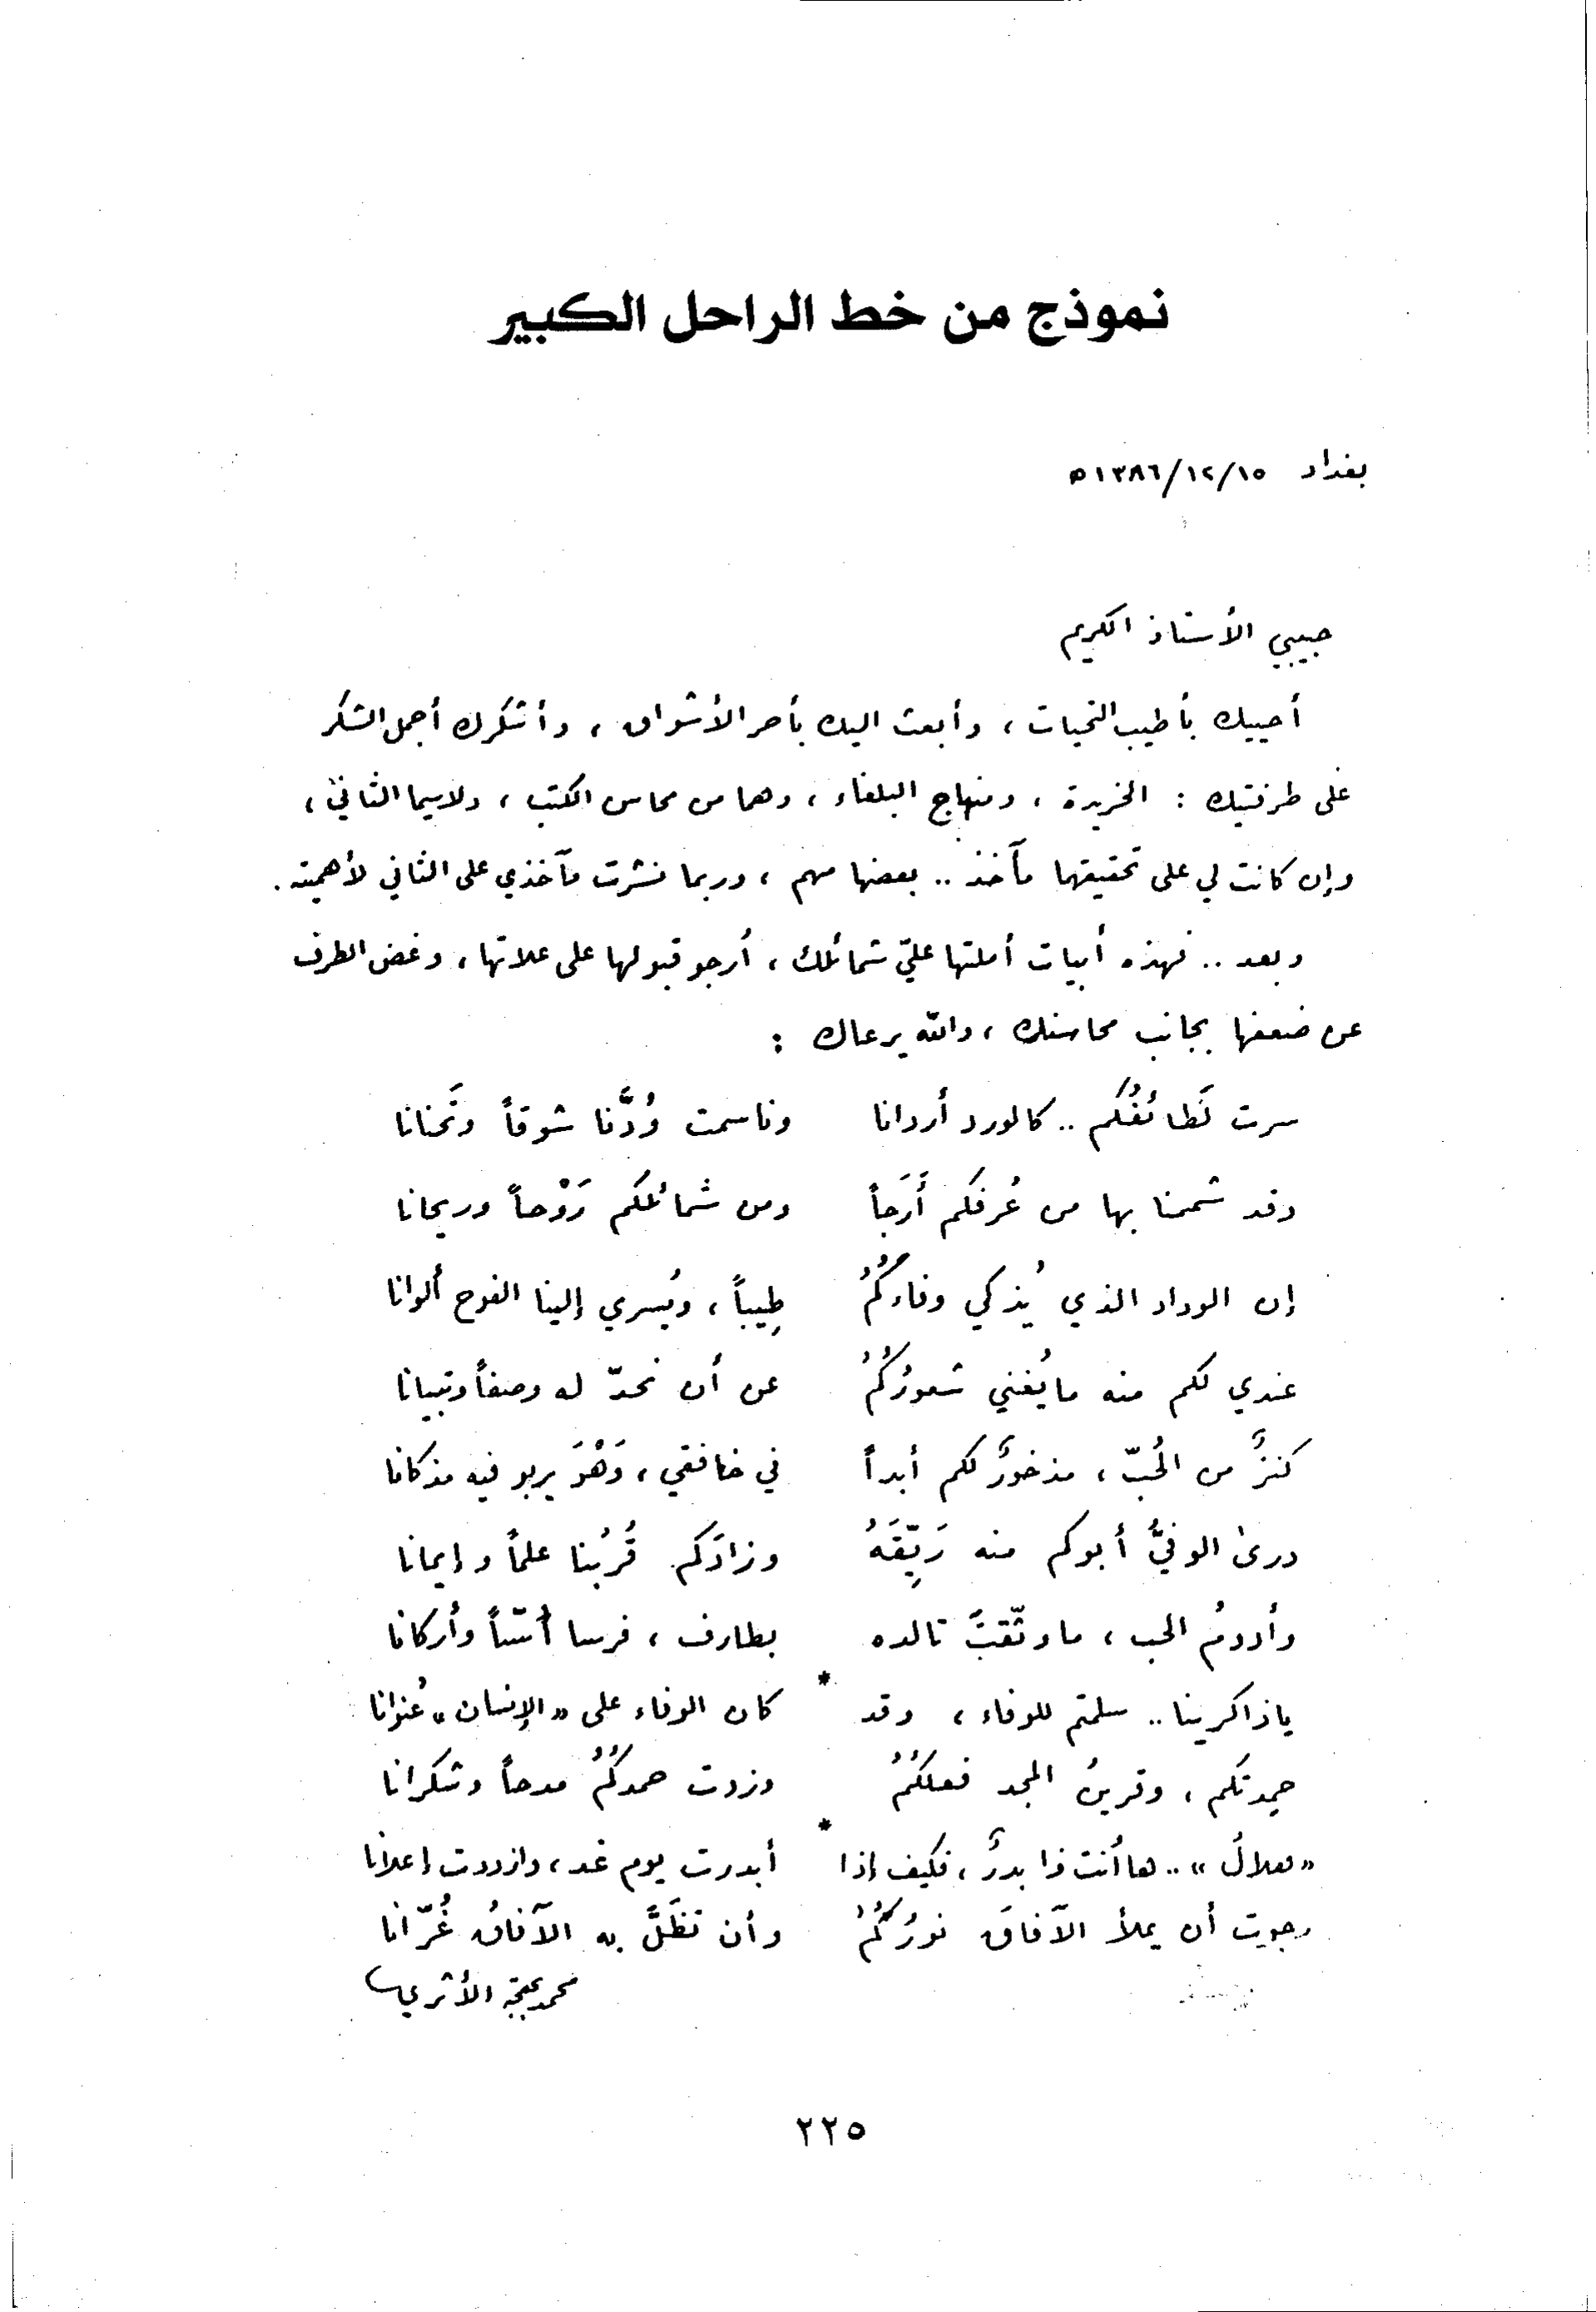 نموذج من خط الراحل الكبير
بغداد ١٥/١٢/١٣٨٦ه
حبيبي الأستاذ الكريم
أحييك بأطيب التحيات ، وأبعث اليك بأحر الأشواق ، وأشكرك أجمل الشكر
على طرفتيك : الخريدة ، ومنهاج البلغاء ، وهما من محاسن الكتب ، ولاسيما الثاني ،
وإن كانت لي على تحقيقهما مآخذ .. بعضها مهم ، وربما نشرت مآخذي على الثاني لأهميته .
وبعد .. فهذه أبيات أملتها عليّ شمائلك ، أرجو قبولها على علاتها ، وغض الطرف
عن ضعفها بجانب محاسنك ، والله يرعاك :
سرت لَطائفُكم .. كالورد أردانا وناسمت وُدَّنا شوقاً وتَحنانا
وقد شممنا بها من عُرفكم أَرَجاً ومن شمائلكم رَوْحاً وريحانا
إن الوداد الذي يُذكي وفاءكُمُ طِيباً ، ويُسري إلينا الفوح ألوانا
عندي لكم منه ما يُغني شعورُكُمُ عن أن نحدّ له وصفاً وتبيانا
كنزٌ من الحُبّ ، مذخورٌ لكم أبداً في خافقي ، وَهْوَ يربو فيه مذكانا
روىٰ الوفيُّ أبوكم منه رَيِّقَهُ وزادَكم قُربُنا علماً وإيمانا
وأدومُ الحب ، ما وثّقتَ تالده بطارف ، فرسا أُسّاً وأركانا
*
ياذاكرينا .. سلمتم للوفاء ، وقد كان الوفاء على «الإنسان» عُنوانا
حمِدتكم ، وقرينُ المجد فعلُكُمُ وزدت حمدكُمُ مدحاً وشكرانا
*
«هلالُ» .. ها أنت ذا بدرٌ ، فكيف إذا أبدرت يوم غد ، وازددت إعلانا
رجوت أن يملأ الآفاقَ نورُكُمُ وأن تظَلَّ به الآفاقُ غُرّانا
محمد بهجة الأثري
٢٢٥